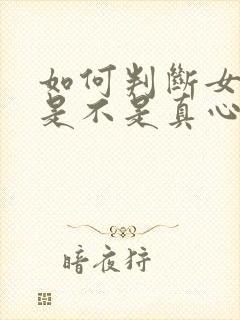 如何判斷女
是不是真心
暗夜狩